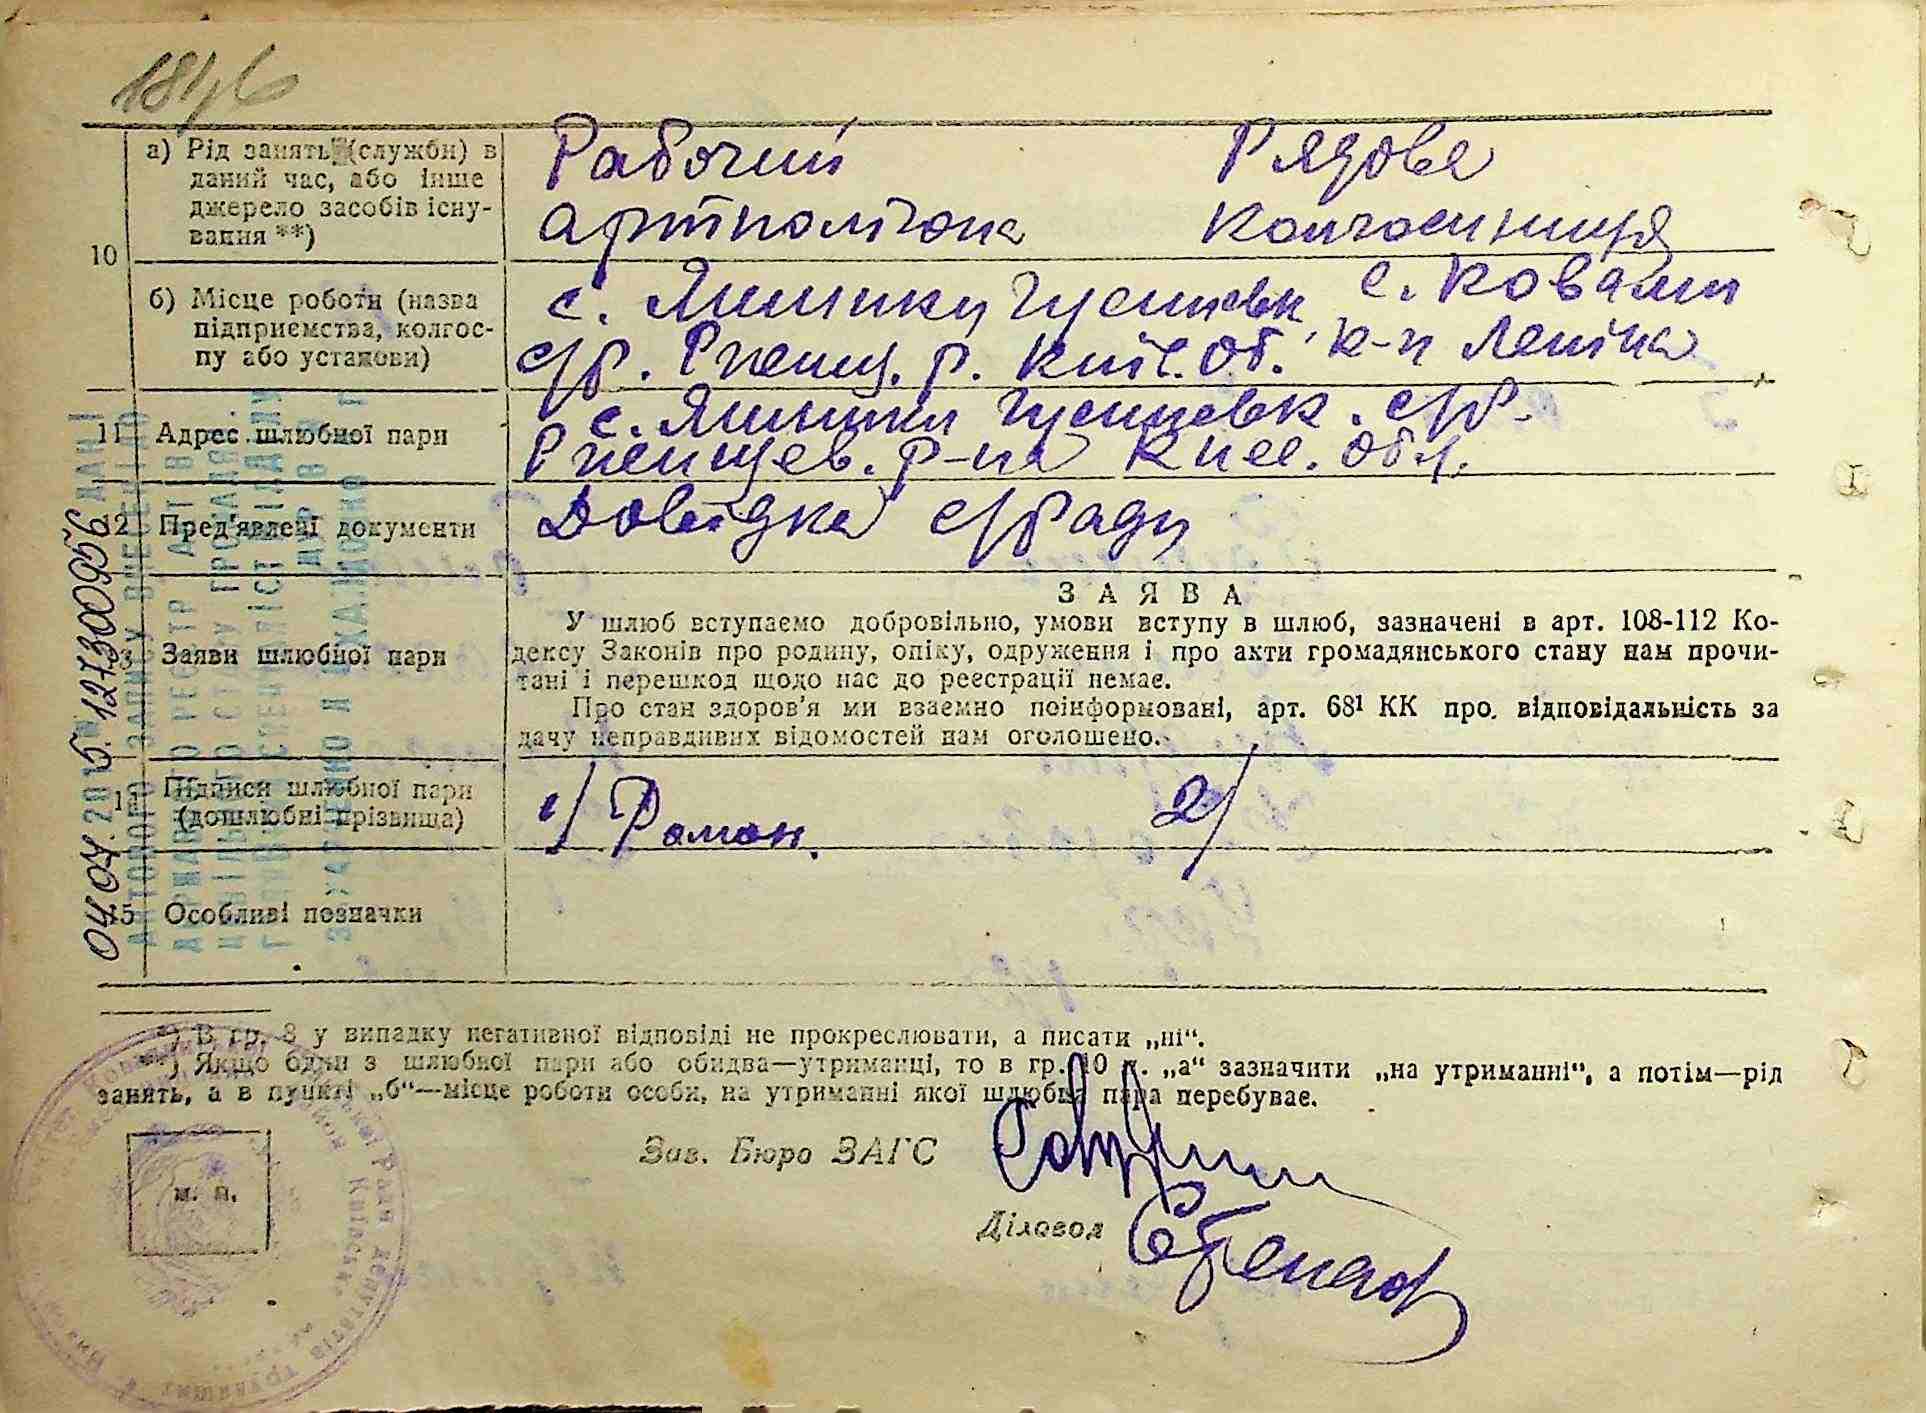 1846
10
а) Рід занять (служби) в даний час, або інше джерело засобів існування **)
Рабочий артполігона
Рядова колгоспниця
б) Місце роботи (назва підприємства, колгоспу або установи)
с/р. Ржищ. р. Київ. Об.
с. Ковалин
к-п Леніна
11
Адрес шлюбної пари
с/р.
Ржищев. р-на Киев. Обл.
12
Пред'явлені документи
Довідка с/Ради
Заяви шлюбної пари
ЗАЯВА
У шлюб вступаємо добровільно, умови вступу в шлюб, зазначені в арт. 108-112 Ко-
дексу Законів про родину, опіку, одруження і про акти громадянського стану нам прочи-
тані і перешкод щодо нас до реєстрації немає.
Про стан здоров'я ми взаємно поінформовані, арт. 68¹ КК про відповідальність за
дачу неправдивих відомостей нам оголошено.
Підписи шлюбної пари
(дошлюбні прізвища)
1/ Роман.
2/
15
Особливі позначки
*) В гр. 8 у випадку негативної відповіді не прокреслювати, а писати „ні“.
**) Якщо один з шлюбної пари або обидва—утриманці, то в гр. 10 п. „а“ зазначити „на утриманні“, а потім—рід
занять, а в пункті „б“—місце роботи особи, на утриманні якої шлюбна пара перебуває.
Зав. Бюро ЗАГС
м. п.
Діловод